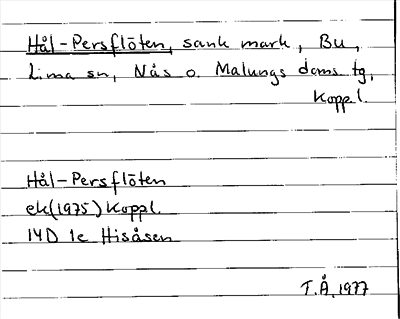 Hål-Persflöten, sank mark, Bu,
Lima sn, Nås o. Malungs doms. tg,
Koppl.
Hål-Persflöten
ek(1975) Koppl.
14D 1e Hisåsen
T.Å. 1977